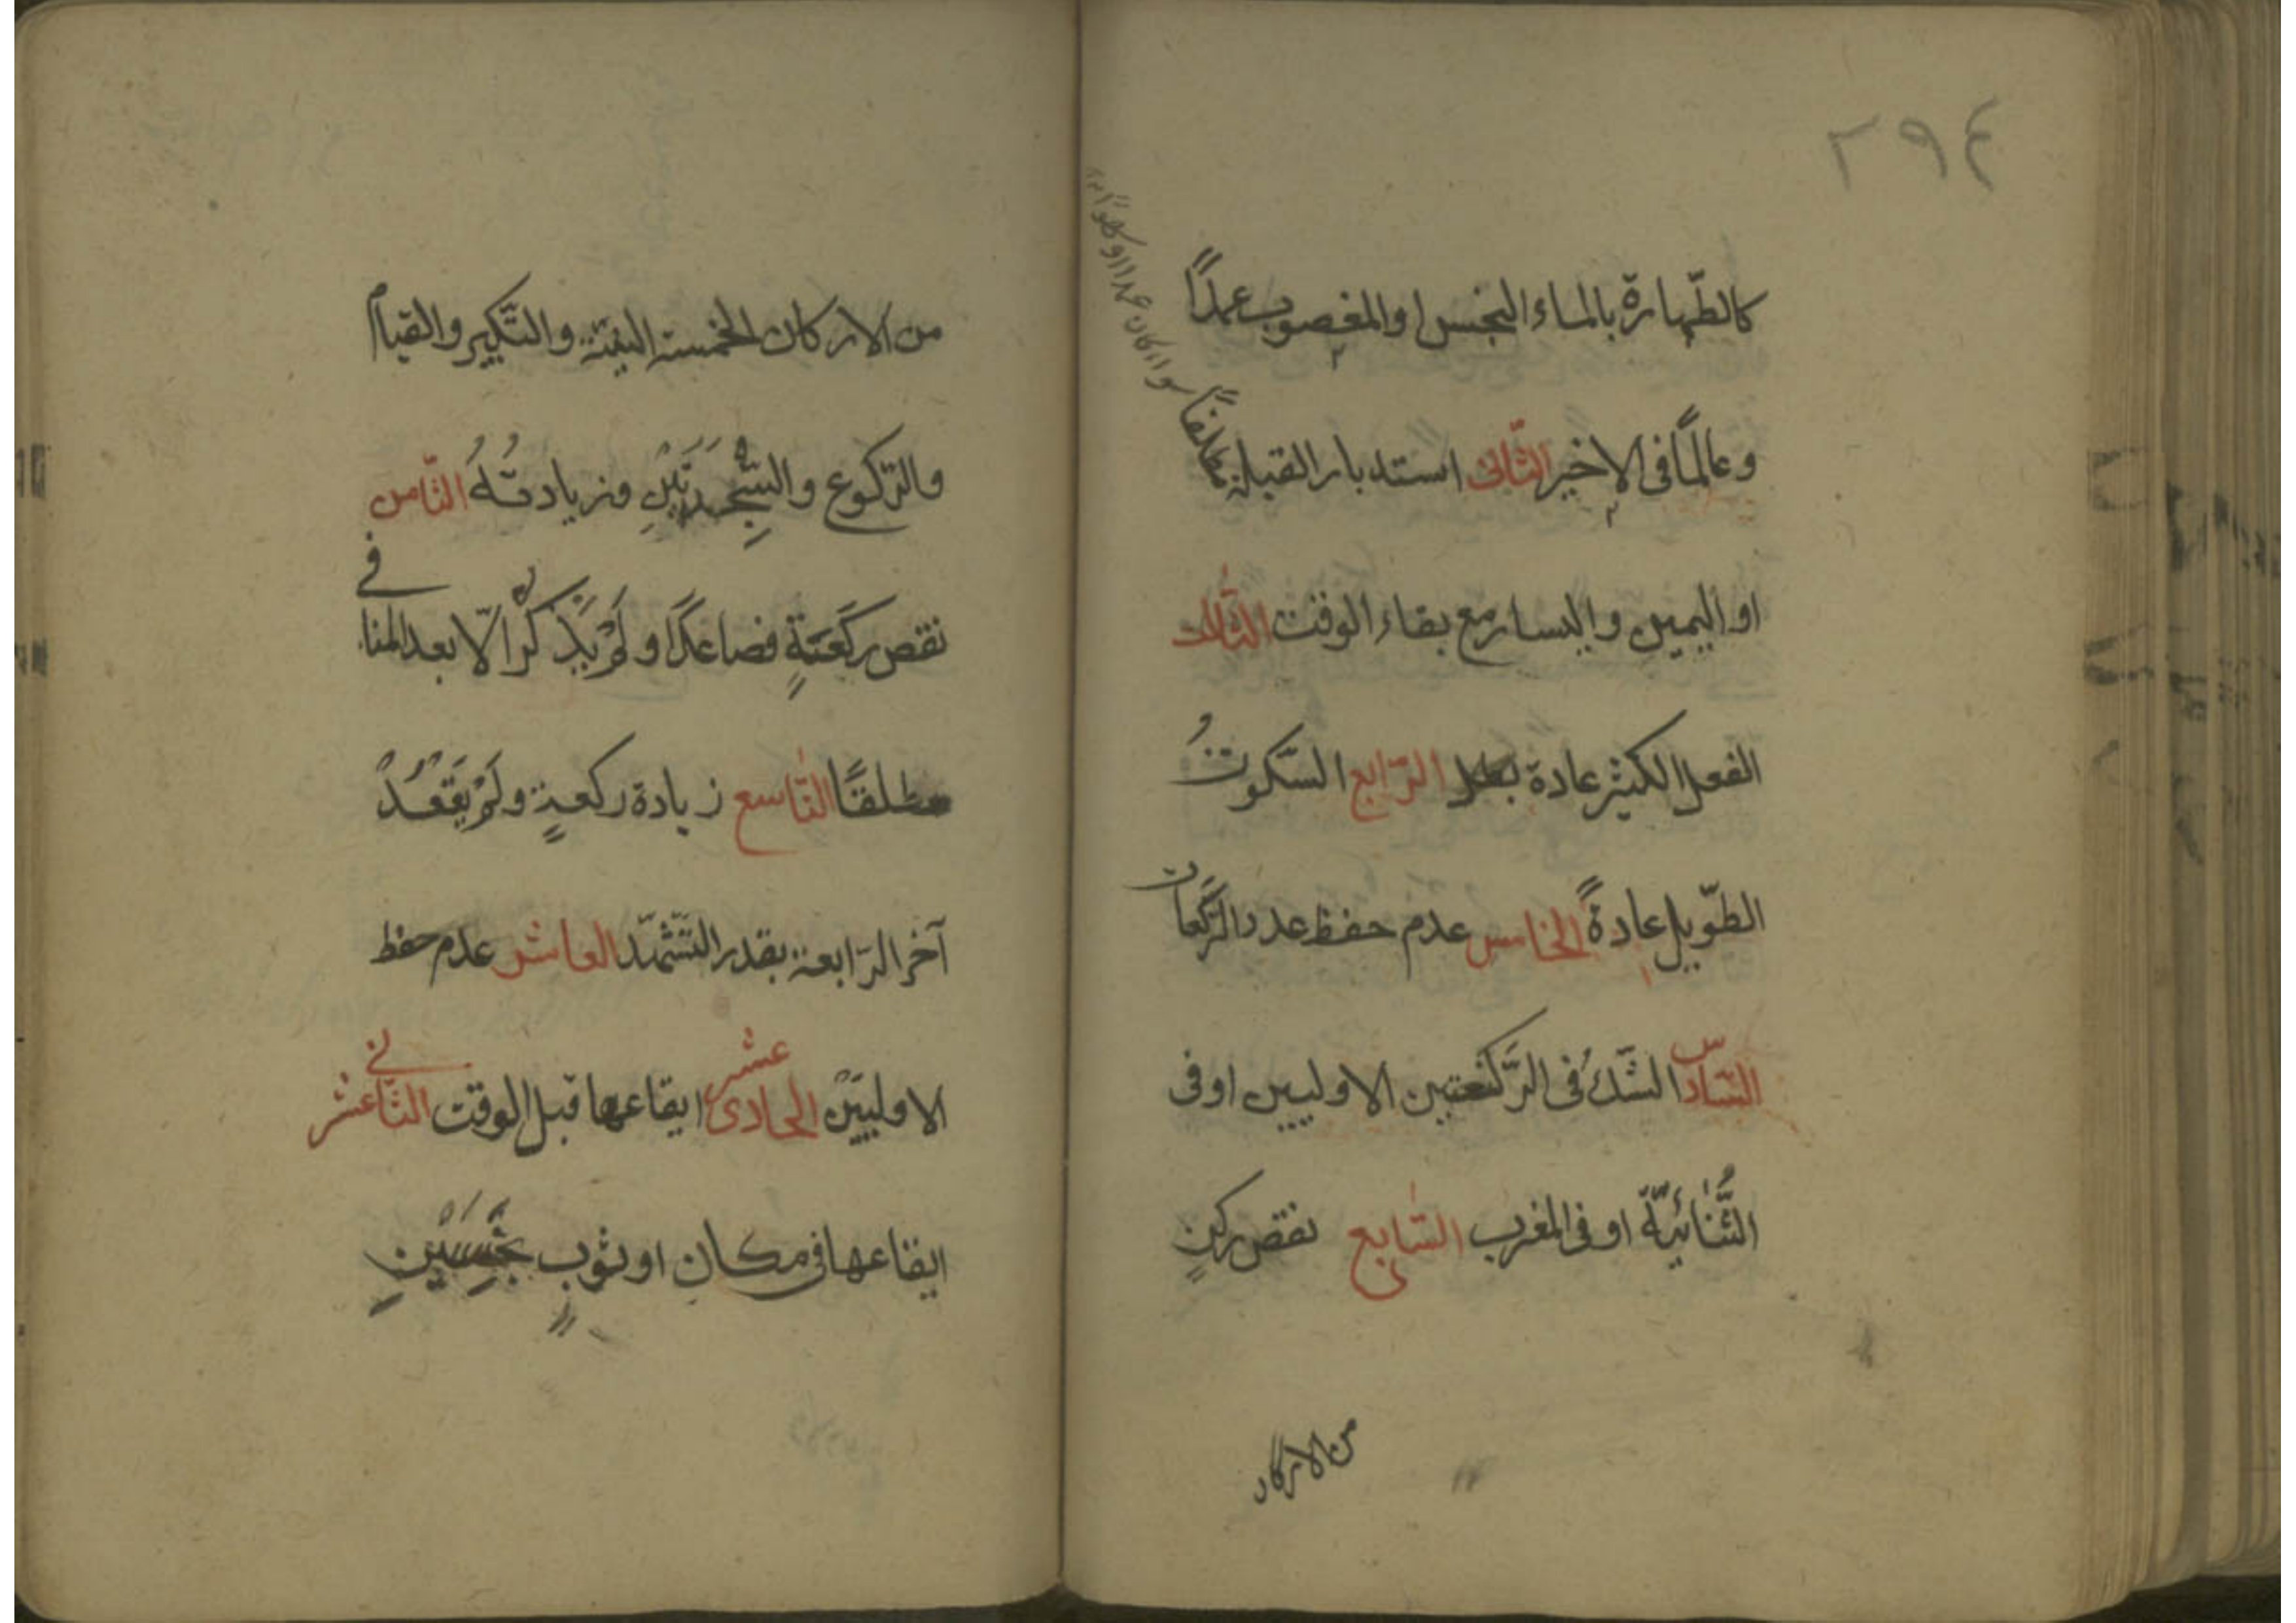 ٢٩٤
كالطّهارة بالماء النجس او المغصوب عمدًا
وعالمًا فى الاخير الثّانى استدبار القبلة مطلقًا
سواء كان عمدا او
او اليمين واليسار مع بقاء الوقت الثّالث
الفعل الكثير عادة الرّابع السّكوتُ
الطّويل عادةً الخامس عدم حفظ عدد الرّكعات
السّادس الشّكُ فى الرّكعتين الاوليين او فى
الثُّنَائيّة او فى المغرب السّابع نقص ركنٍ
من الاركان
من الاركان الخمسة النيّة والتّكبير والقيام
والرّكوع والسَّجْدَتَيْنِ وزيادتُهُ الثّامن
نقص ركعَةٍ فصاعدًا ولَمْ يَذْكُرْ الّا بعد المنافى
مطلقًا التّاسع زيادة ركعةٍ ولَمْ يَقْعُدْ
آخر الرّابعة بقدر التّشهّد العاشر عدم حفظ
الاوليَيْن الحادى عشر ايقاعها قبل الوقت الثّانى عشر
ايقاعها فى مكان او ثوبٍ نَجِسَيْنِ